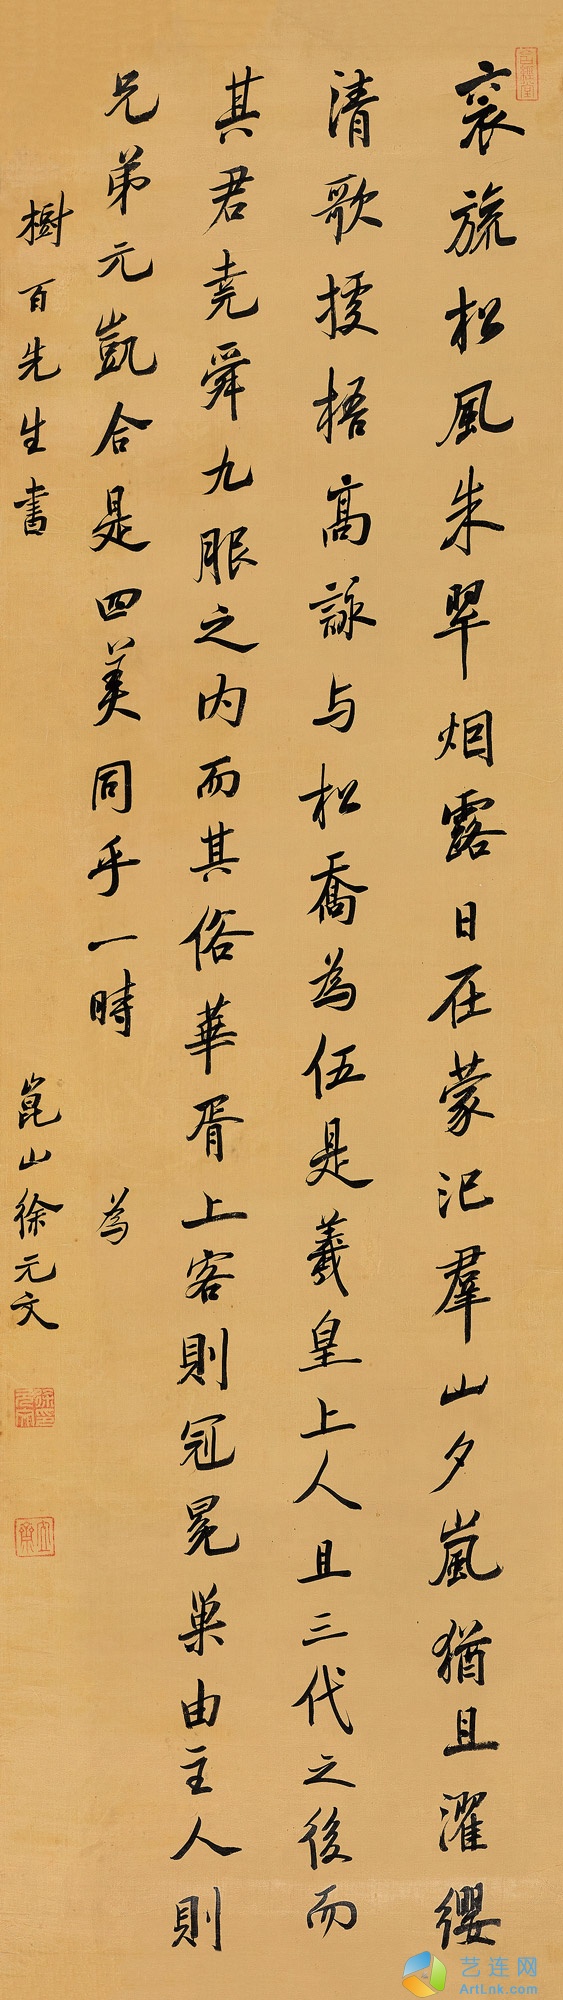 裒旒松風朱翠烟露日在蒙汜羣山夕嵐猶且濯纓
清歌據梧高詠与松喬為伍是羲皇上人且三代之後而
其君堯舜九服之内而其俗華胥上客則冠冕巢由主人則
兄弟元凱合是四美同乎一時 為
樹百先生書 崑山徐元文
艺连网
ArtLnk.com